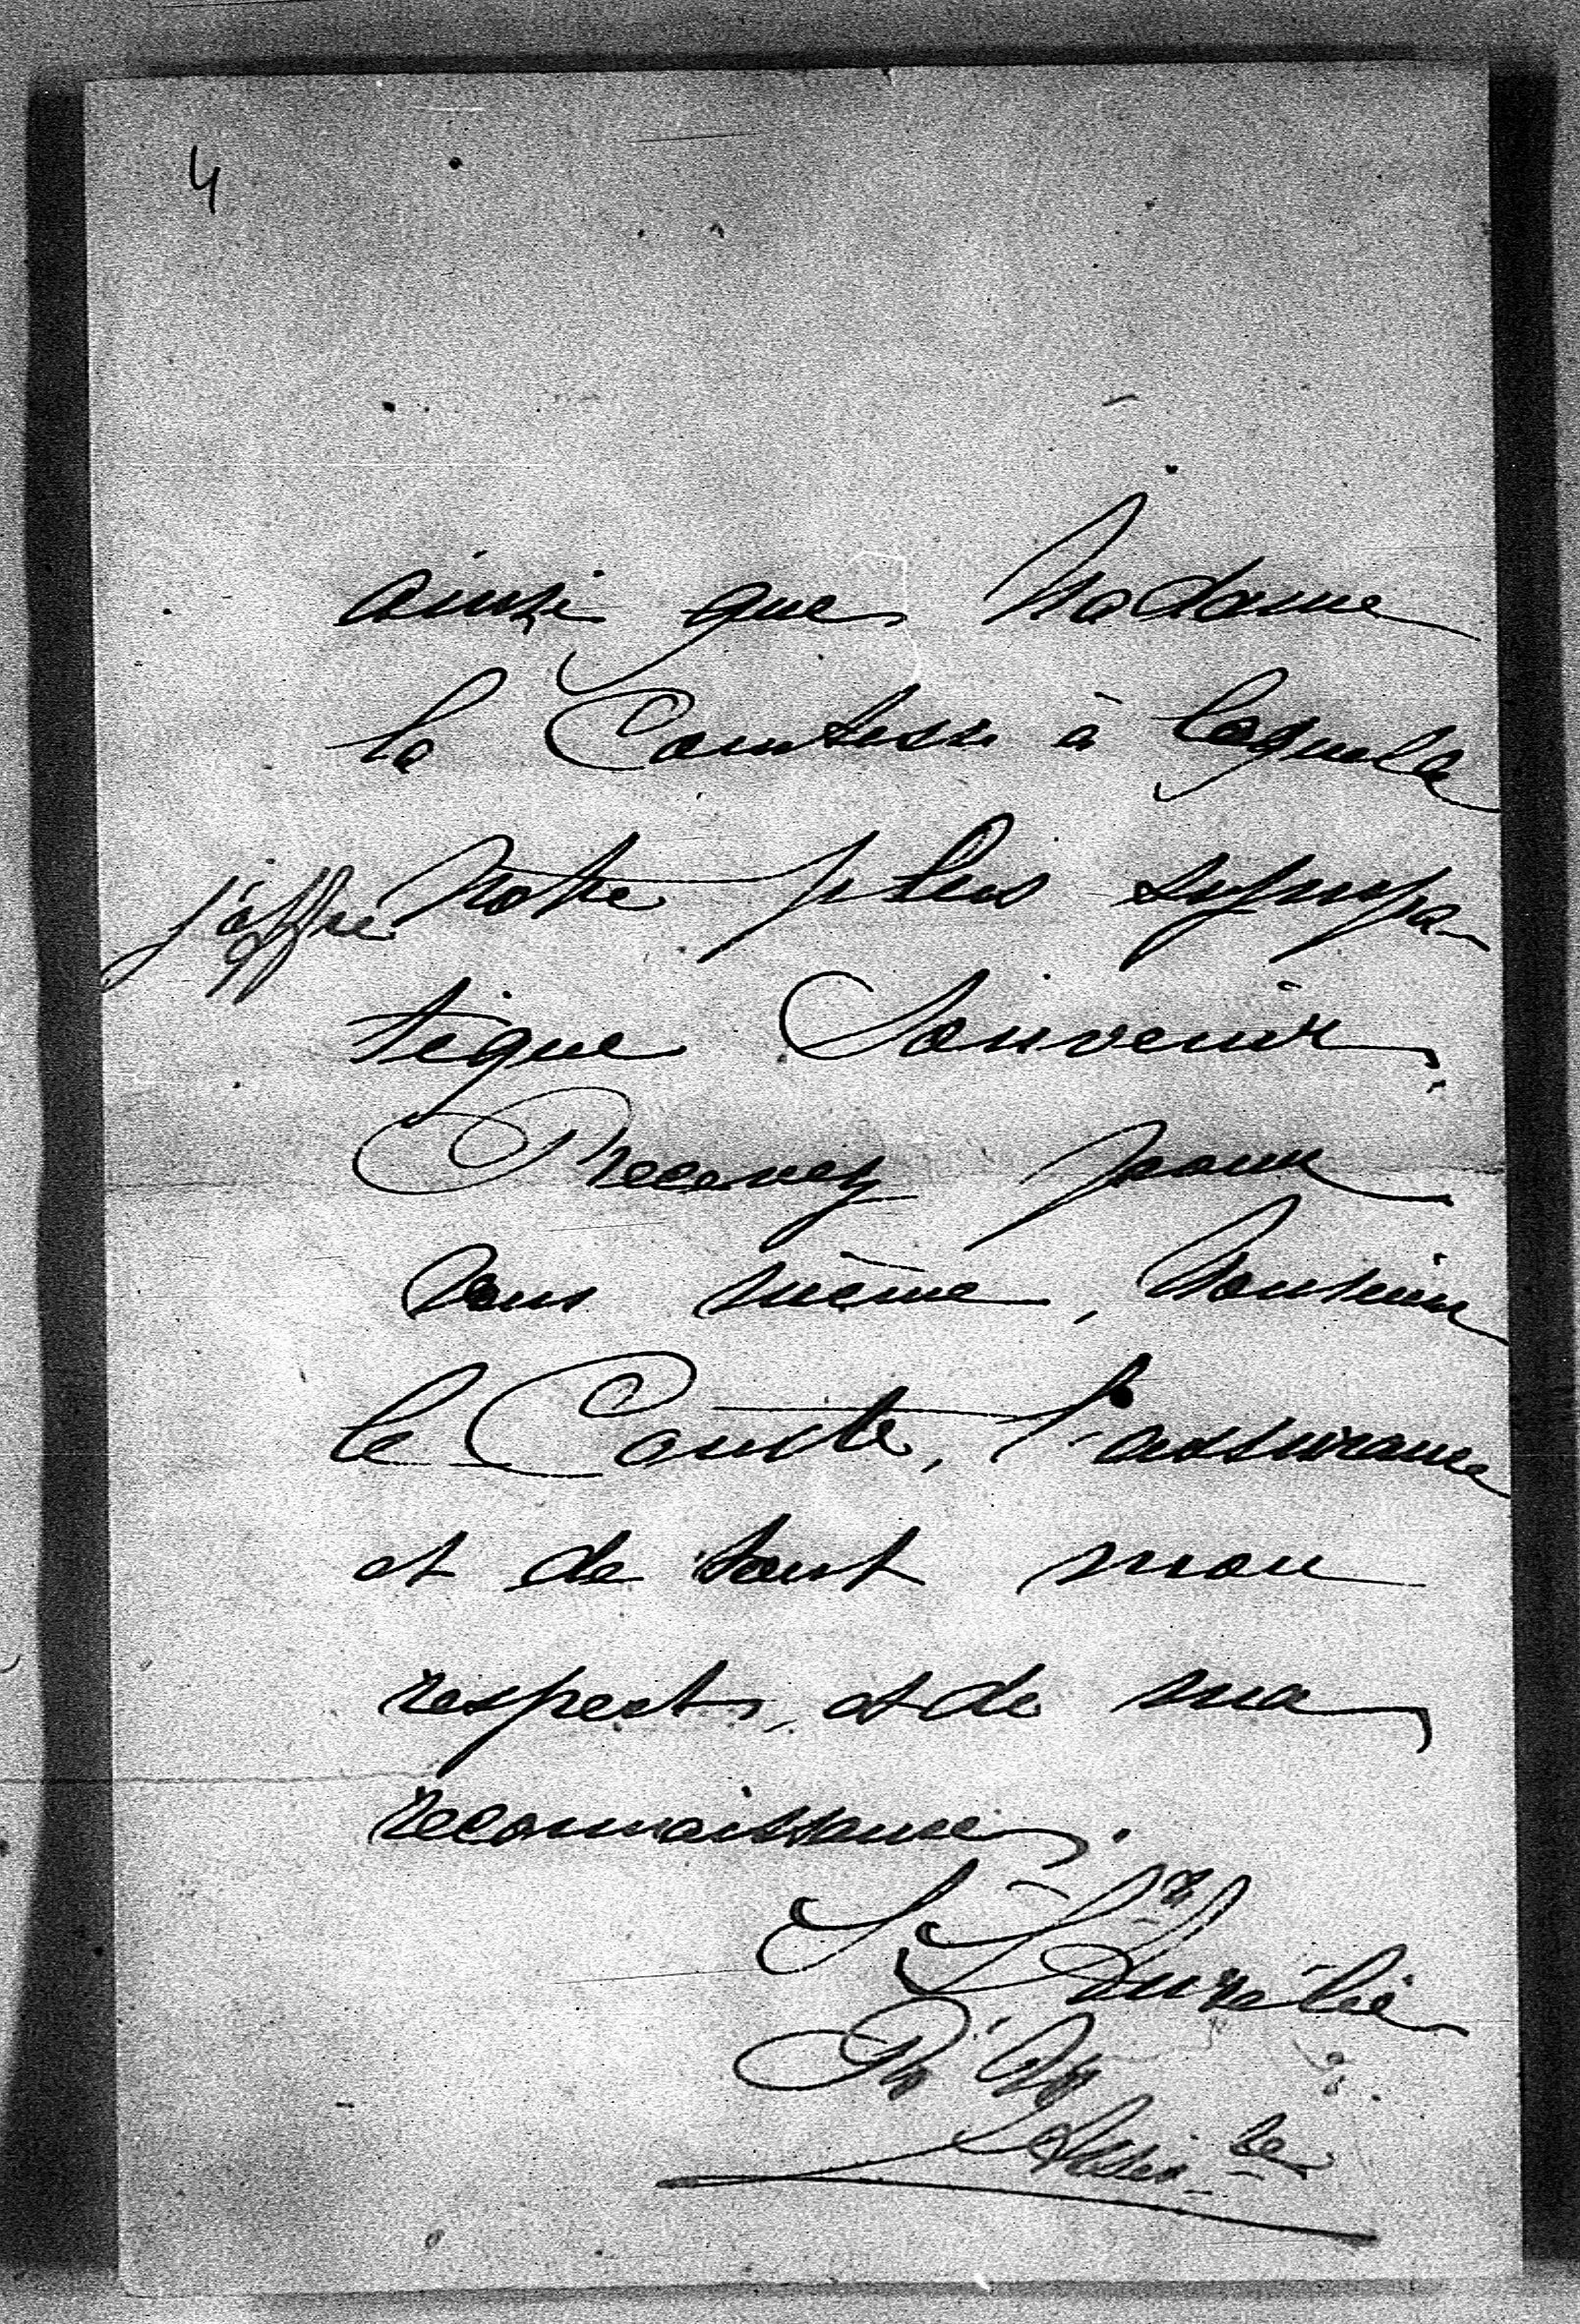 4
ainsi que Madame
la Comtesse à laquelle
j'offre notre plus sympa-
tique Souvenir.
Recevez pour
vous même, Monsieur
le Comte, l'assurance
et de tout mon
respect, et de ma
reconnaissance.
Aurélie